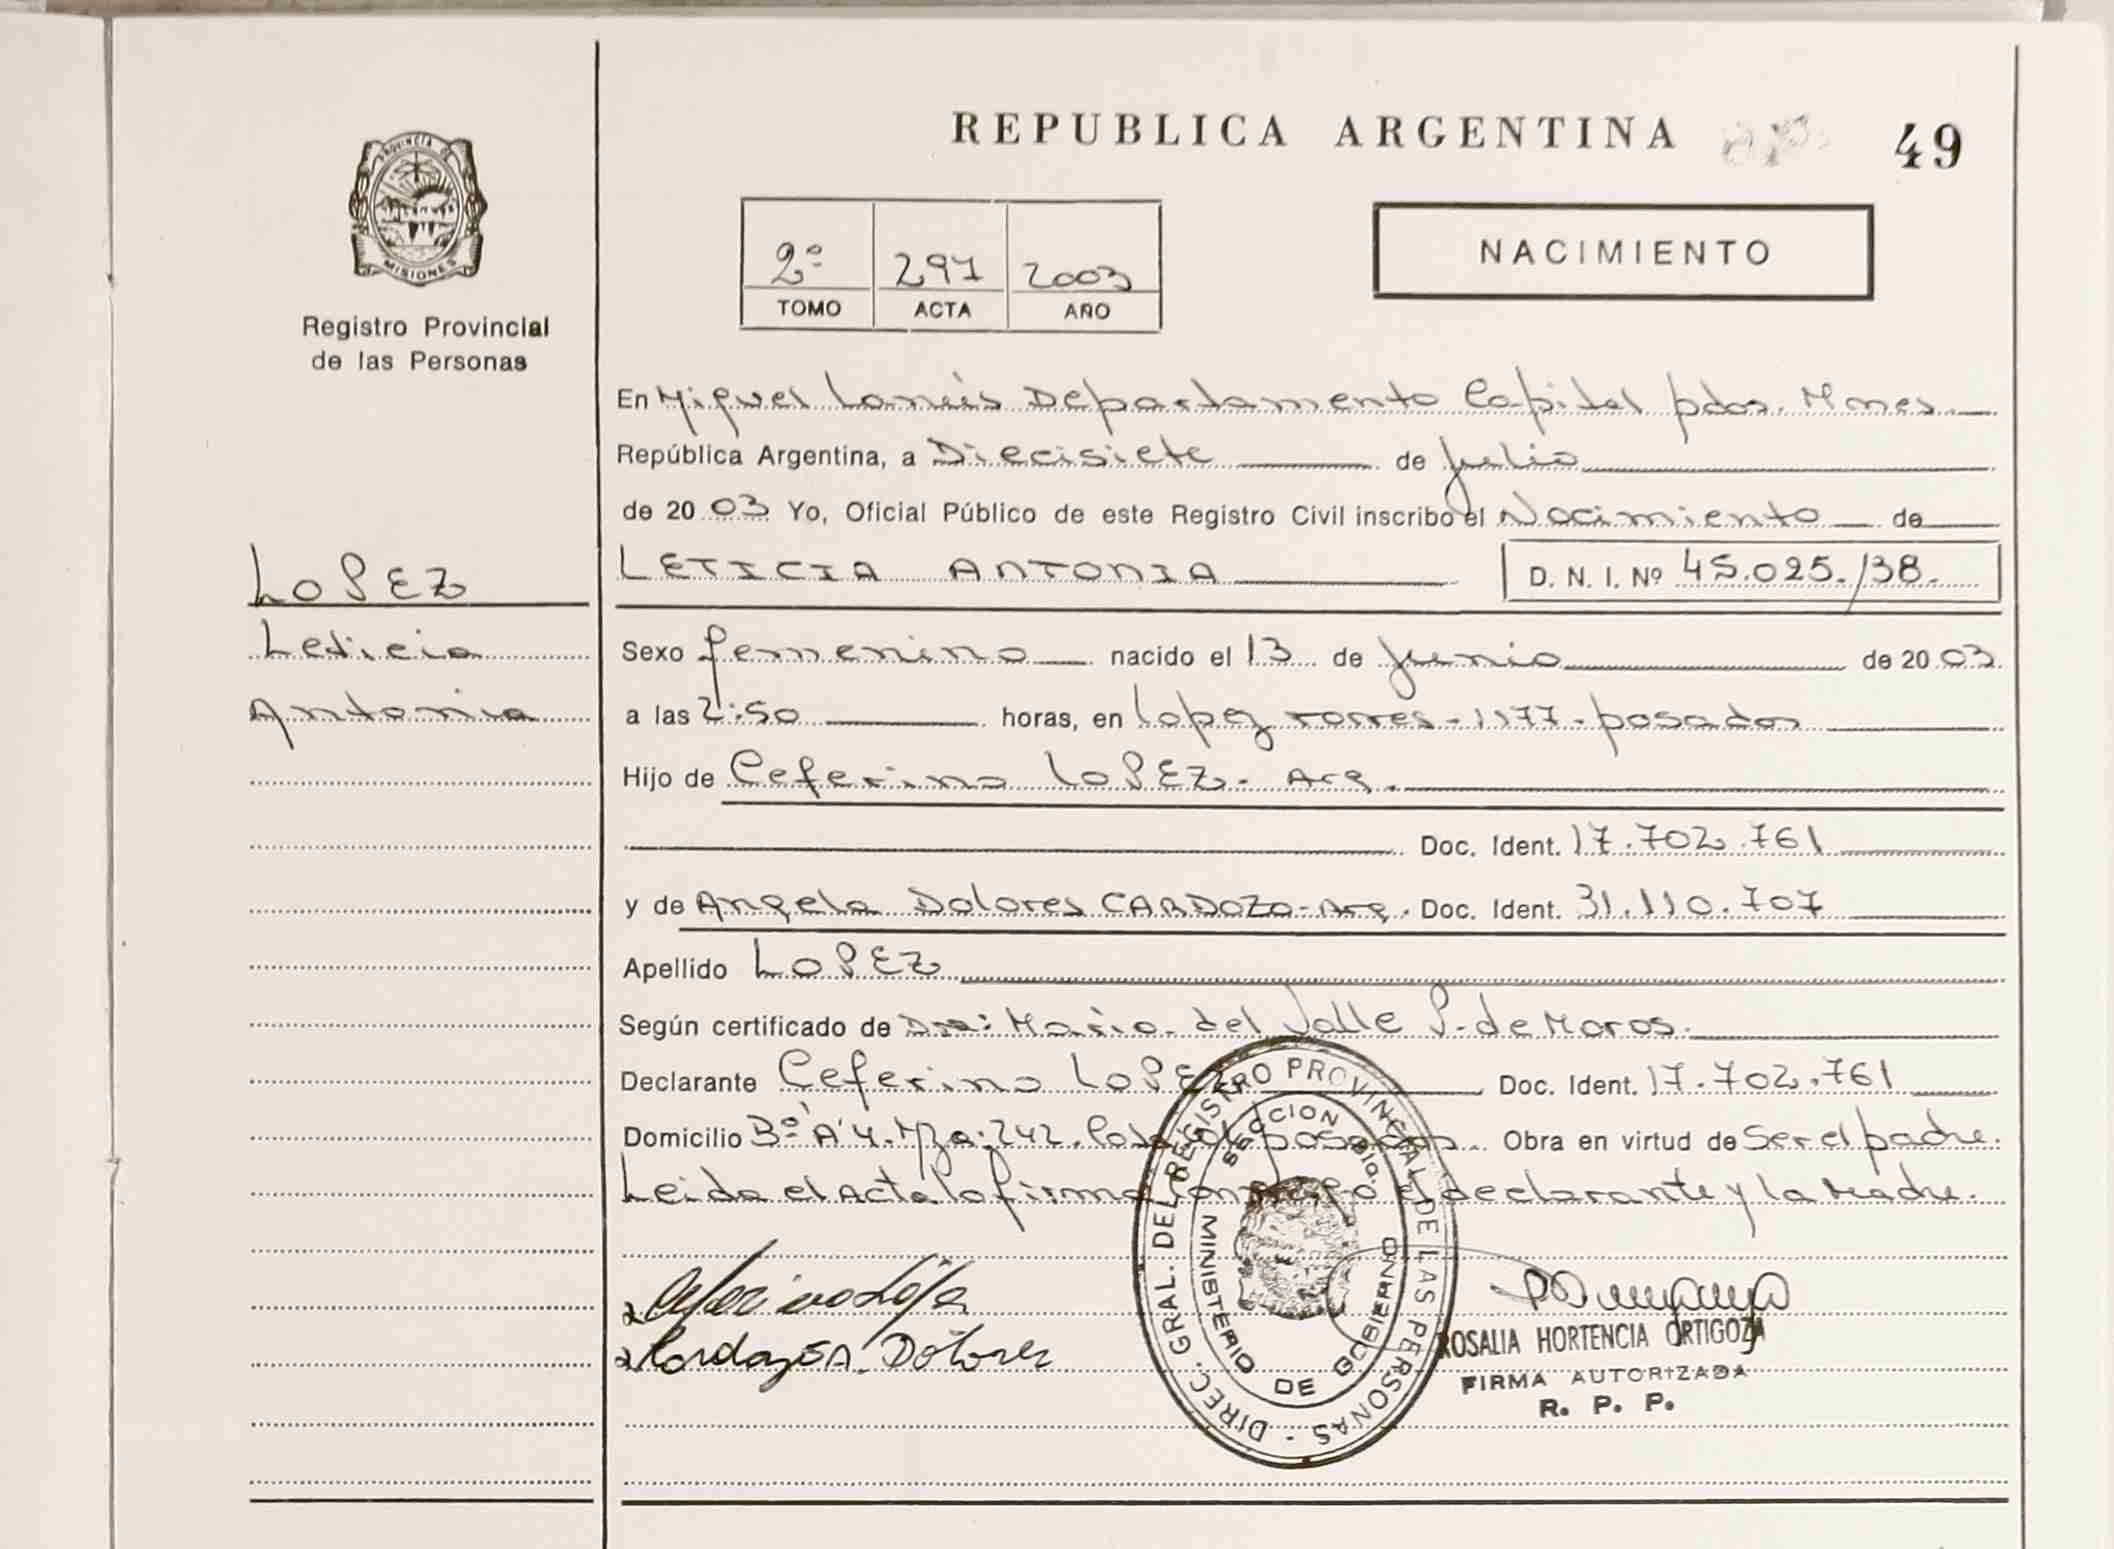 REPUBLICA ARGENTINA
49
PROVINCIA DE
MISIONES
Registro Provincial
de las Personas
2º 291 2003
TOMO ACTA AÑO
NACIMIENTO
En Miguel Lanús Departamento Capital pdas. Mnes.
República Argentina, a Diecisiete de Julio
de 2003 Yo, Oficial Público de este Registro Civil inscribo el Nacimiento de
LOPEZ
LETICIA ANTONIA D. N. I. Nº 45.025.138.
Leticia
Sexo femenino nacido el 13 de Junio de 2003
Antonia
a las 2:50 horas, en Lopez Torres - 1177 - posadas
Hijo de Ceferino LOPEZ - Arg.
Doc. Ident. 17.702.761
y de Angela Dolores CARDOZO - Arg. Doc. Ident. 31.110.707
Apellido LOPEZ
Según certificado de Dra: Maria del Valle P. de Moros.
Declarante Ceferino LOPEZ Doc. Ident. 17.702.761
Domicilio Bº A 4. Mza. 242. posadas. Obra en virtud de Ser el padre.
Leida el Acta la firma conmigo el declarante y la Madre.
Ceferino López
Cardozo A. Dolores
DIREC. GRAL. DEL REGISTRO PROVINCIAL DE LAS PERSONAS
MINISTERIO DE GOBIERNO
ROSALIA HORTENCIA ORTIGOZA
FIRMA AUTORIZADA
R. P. P.